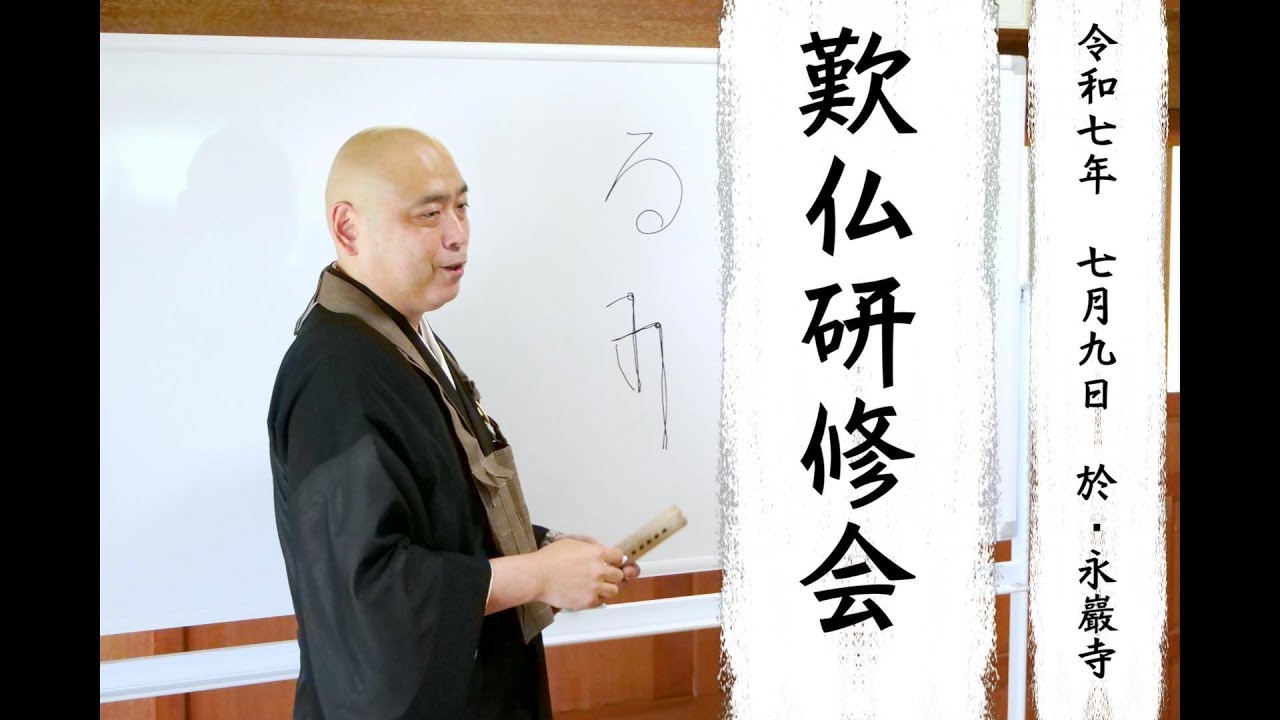 令和七年 七月九日 於・永巖寺
歎仏研修会
る